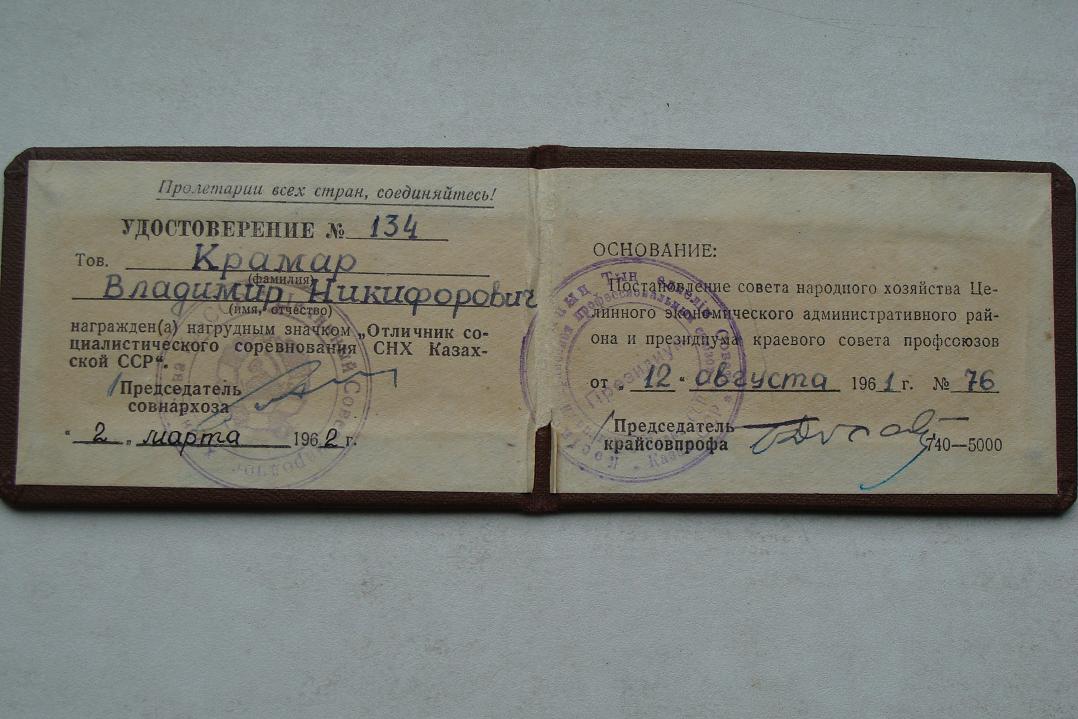 Пролетарии всех стран, соединяйтесь!
УДОСТОВЕРЕНИЕ № 134
Тов. Крамар
(фамилия)
Владимир Никифорович
(имя, отчество)
награжден(а) нагрудным значком „Отличник со-
циалистического соревнования СНХ Казах-
ской ССР“.
Председатель
совнархоза
„ 2 „ марта 1962 г.
ОСНОВАНИЕ:
Постановление совета народного хозяйства Це-
линного экономического административного рай-
она и президиума краевого совета профсоюзов
от „ 12 “ августа 1961 г. № 76
Председатель
крайсовпрофа
740—5000
Президиум